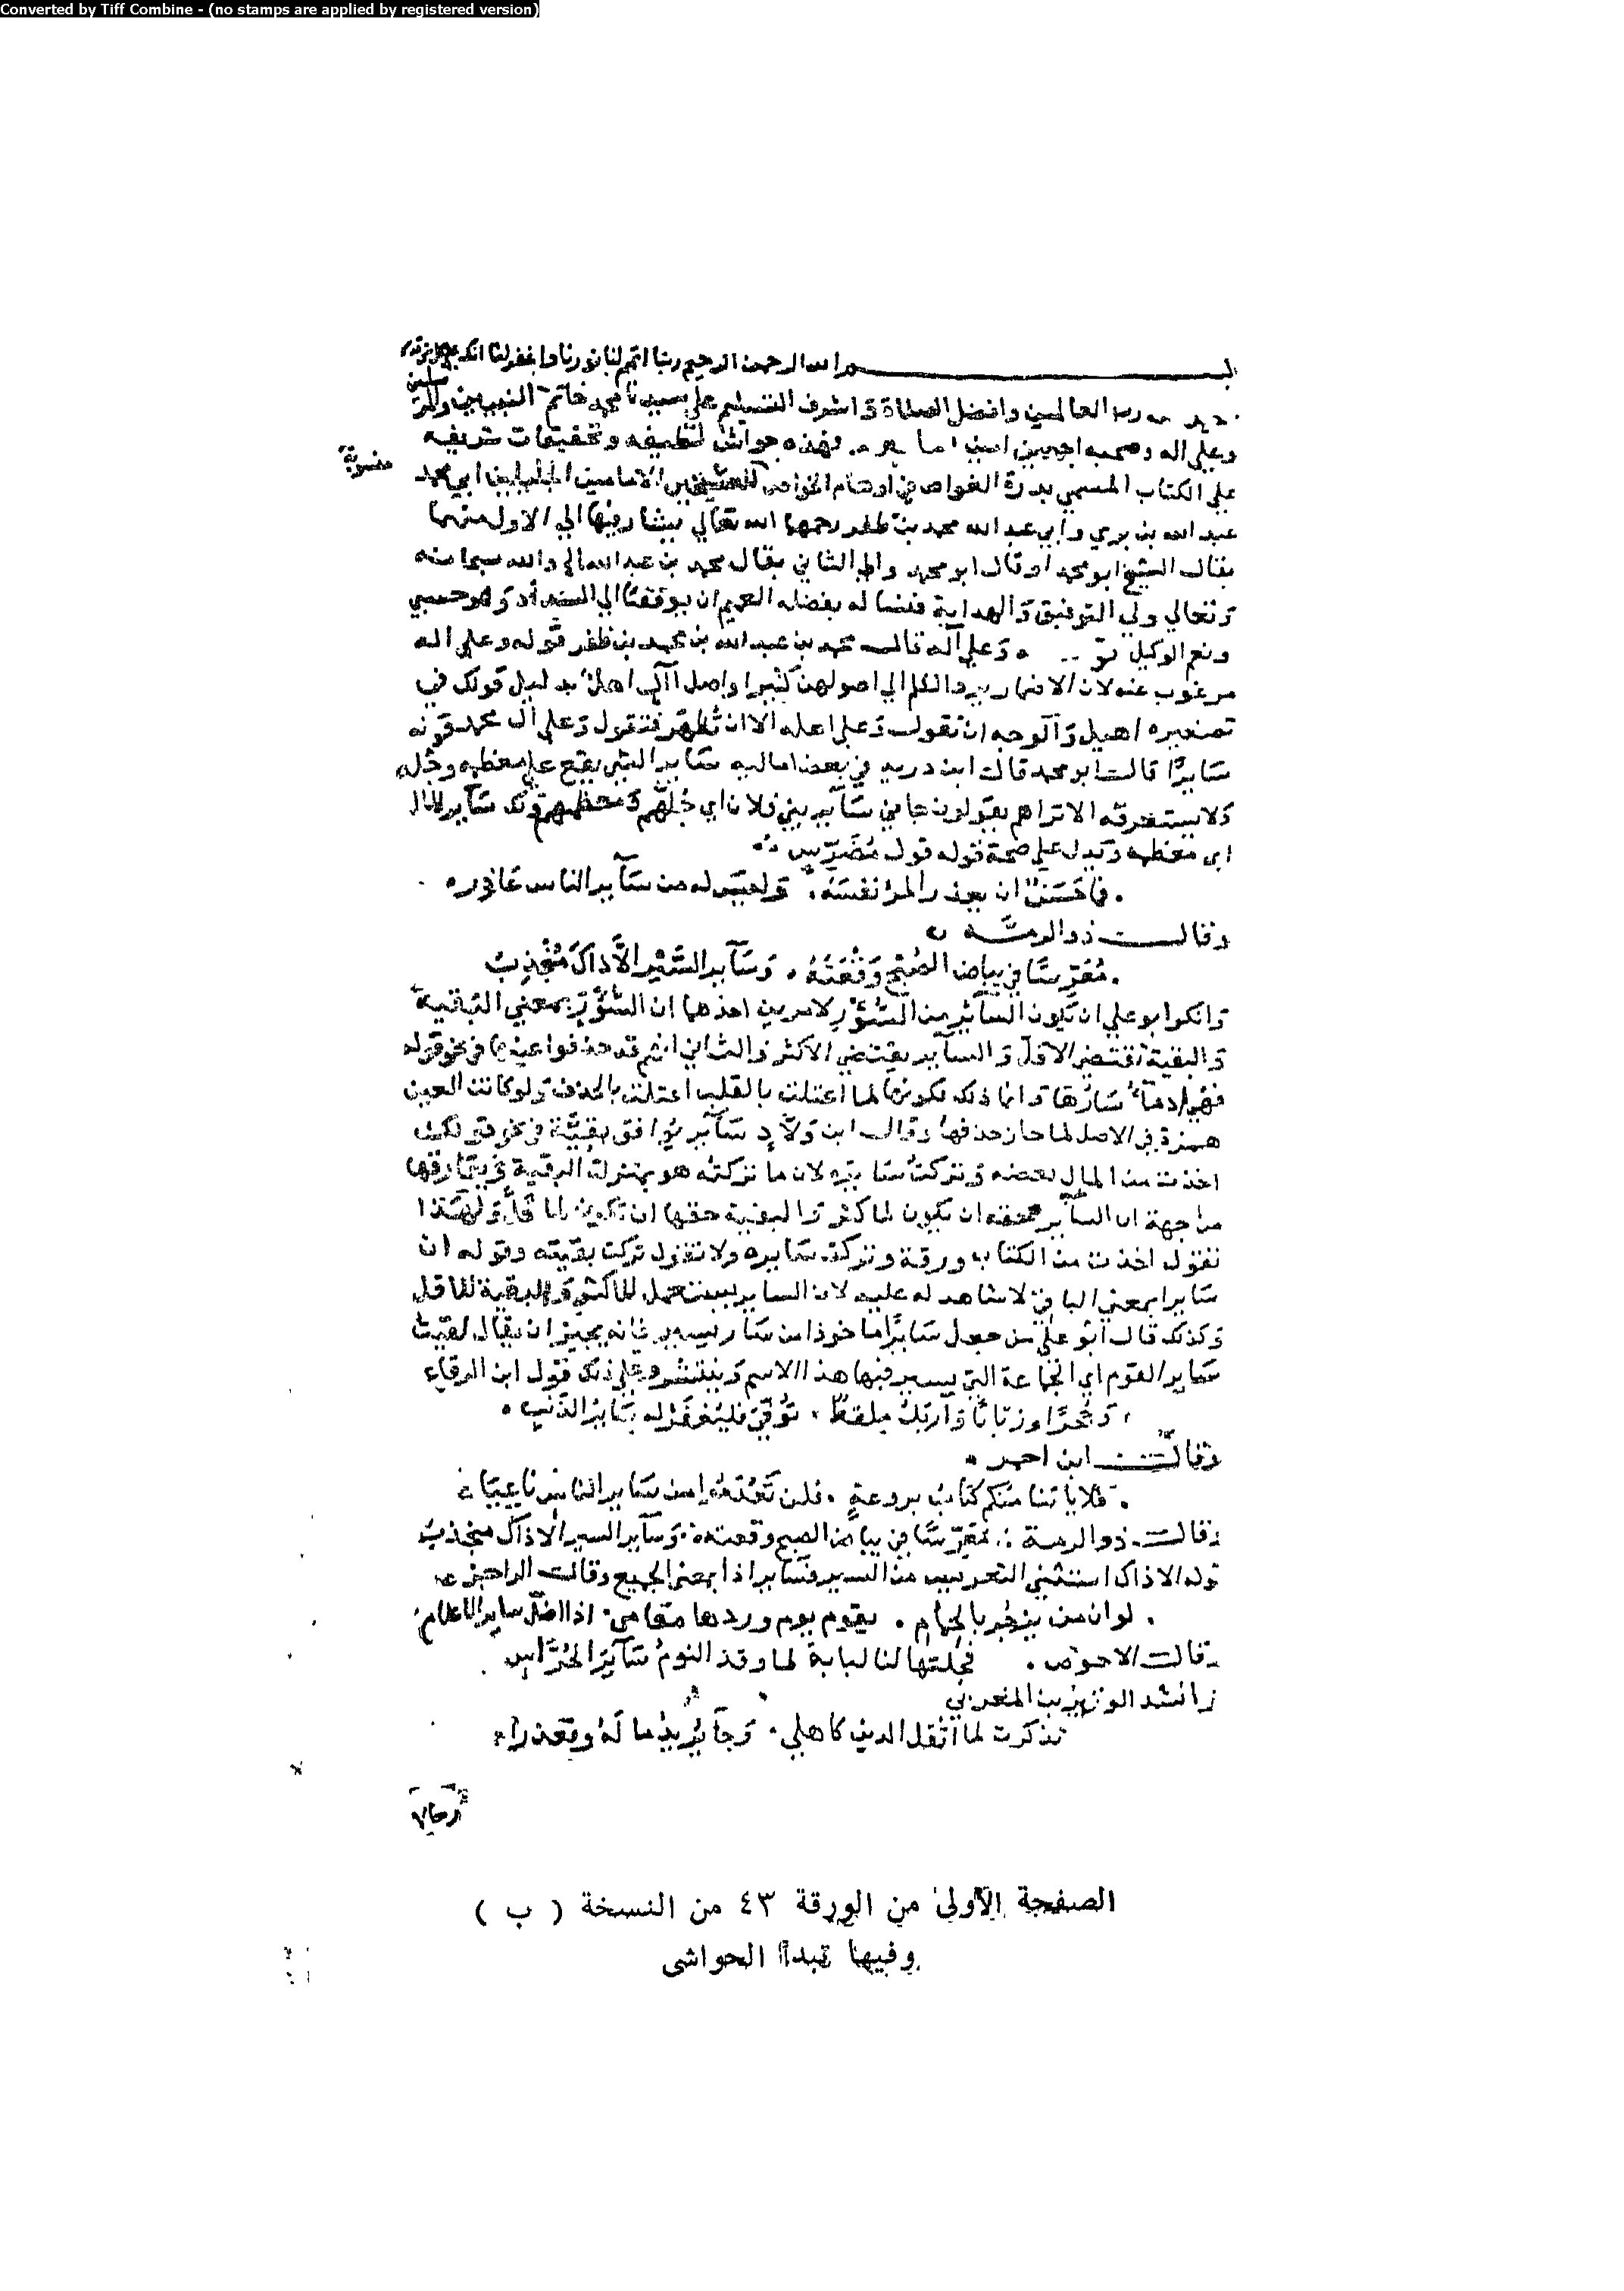 Converted by Tiff Combine - (no stamps are applied by registered version)
بسم الله الرحمن الرحيم ربنا اتمم لنا نورنا واغفر لنا انك
رب العالمين وافضل الصلاة واشرف التسليم على سيدنا محمد خاتم النبيين والمرسلين
وعلى اله وصحبه اجمعين امين اما بعد فهذه حواش لطيفه وتحقيقات شريفه
منسوبة
على الكتاب المسمى بدرة الغواص في اوهام الخواص للشيخين الامامين الجليلين ابي محمد
عبد الله بن بري وابي عبد الله محمد بن ظفر رحمهما الله تعالى يشار فيها الى الاول منهما
بقال الشيخ ابو محمد او قال ابو محمد والى الثاني بقال محمد بن عبد الله والله سبحانه
وتعالى ولي التوفيق والهداية فنساله بفضله العميم ان يوفقنا الى السداد وهو حسبي
ونعم الوكيل وعلى آله قال محمد بن عبد الله بن محمد بن ظفر قوله وعلى اله
مرغوب عنه لان الاضمار يرد الكلم الى اصولهن كثيرا واصل آل اهل بدليل قولك في
تصغيره اهيل والوجه ان تقول وعلى اهله الا ان تظهر فتقول وعلى آل محمد قوله
سايرا قال ابو محمد قال ابن دريد في بعض اماليه ساير الشي يقع على معظمه وجله
ولا يستغرقه الا تراهم يقولون جاني سآير بني فلان اي جلهم ومعظمهم ولك سآير المال
اي معظمه ويدل على صحة قوله قول مضرس
فما حسن ان يعذر المرء نفسه وليس له من سآير الناس عاذر
وقال ذو الرمة
معرسا في بياض الصبح وقعته وسآير السير الا ذاك منجذب
وانكر ابو علي ان يكون السآير من السؤر لامرين احدهما ان السؤر بمعنى البقية
والبقية تقتضي الاقل والساير يقتضي الاكثر والثاني انهم قد حذفوا عينها في نحو قوله
فهي ادمآء سارها وانما ذلك لكونها لما اعتلت بالقلب اعتلت بالحذف ولو كانت العين
همزة في الاصل لما جاز حذفها وقال ابن ولاد سآير يوافق بقية في نحو قولك
اخذت من المال بعضه وتركت سايره لان ما تركته هو بمنزلة البقية ويفارقها
من جهة ان السآير حقه ان يكون لما كثر والبقية حقها ان تكون لما قل ولهذا
تقول اخذت من الكتاب ورقة وتركت سايره ولا تقول تركت بقيته وقوله ان
سايرا بمعنى الباقي لا شاهد له عليه لان الساير يستعمل للاكثر والبقية للاقل
وكذلك قال ابو علي من جعل سايرا ماخوذا من سار يسير فانه يجيز ان يقال لقيت
ساير القوم اي الجماعة التي يسير فيها هذا الاسم وينتشر وعلى ذلك قول ابن الرقاع
وقال ابن احمر
فلا ياتنا منكم كتاب بروعة فلن تعدموا من ساير الناس ناعيا
وقال ذو الرمة معرسا في بياض الصبح وقعته وسآير السير الا ذاك منجذب
قوله الا ذاك استثنى التعريس من السير فساير اذا بمعنى الجميع وقال الراجز
لو ان من يزجر بالحمام يقوم يوم وردها مقامي اذا اضل ساير الاعلام
وقال الاحوص فجلتها لنا لبابة لما وقذ النوم سآير الحراس
وانشد الوزير بن المغربي
تذكرت لما اثقل الدين كاهلي
الصفحة الأولى من الورقة ٤٣ من النسخة ( ب )
وفيها تبدأ الحواشى